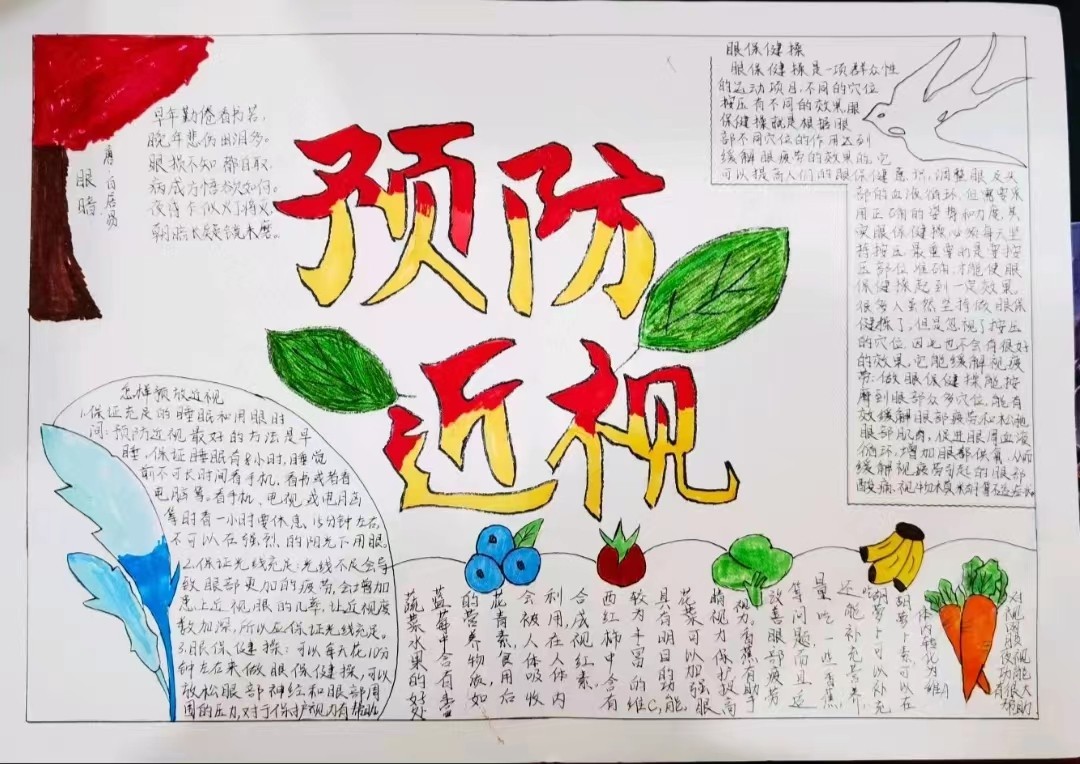 预防
近视
眼暗
唐·白居易
早年勤倦看书苦,
晚年悲伤出泪多。
眼损不知都自取,
病成方悟欲如何。
夜昏乍似灯将灭,
朝暗长疑镜未磨。
眼保健操
眼保健操是一项群众性
的运动项目,不同的穴位
按压有不同的效果,眼
保健操就是根据眼
部不同穴位的作用达到
缓解眼疲劳的效果的。它
可以提高人们的眼保健意识,调整眼及头
部的血液循环,但需要采
用正确的姿势和力度。其
实眼保健操必须每天坚
持按压,最重要的是要按
压部位准确,才能使眼
保健操起到一定效果。
很多人虽然坚持做眼保
健操了,但是忽视了按压
的穴位,因也也不会有很好
的效果。它能缓解视疲
劳:做眼保健操能按
摩到眼部众多穴位,能有
效缓解眼部疲劳,松弛
眼部肌肉,促进眼周血液
循环,增加眼部供氧,从而
缓解视疲劳引起的眼部
酸痛、视物
怎样预放近视
1.保证充足的睡眠和用眼时
间:预防近视最好的方法是早
睡,保证睡眠有8小时,睡觉
前不可长时间看手机,看书或者看
电脑等。看手机、电视或电脑
等时看一小时要休息15分钟左右,
不可以在强烈的阳光下用眼。
2.保证光线充足:光线不足会导
致眼部更加的疲劳,会增加
患上近视眼的几率,让近视度
数加深,所以应保证光线充足。
3.眼保健操:可以每天花10分
钟左右来做眼保健操,可以
放松眼部神经和眼部周
围的压力,对于保护视力有帮助。
蔬菜水果的好处
蓝莓中含有丰富
的营养物质,如
花青素,食用后
会被人体吸收
利用,在人体内
合成视红素。
西红柿中含有
较为丰富的维C,能
具有明目的功
花菜可以加强眼
睛视力保护,提高
视力。香蕉有助于
改善眼部疲劳
等问题,而且适
量吃一些香蕉
还能补充营养,
吃胡萝卜可以补充
胡萝卜素,可以在
体内转化为维A
对视